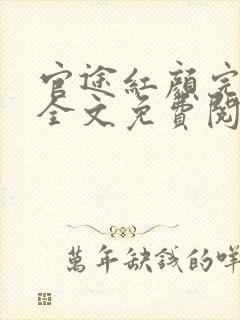 官途紅顏完
全文免費閱
萬年缺錢的咩